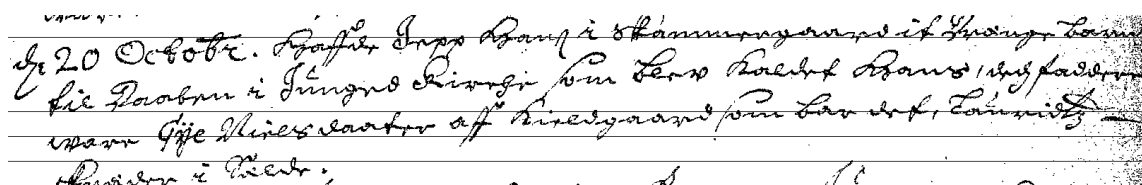 dn 20 Octobr. Haffde Jepp Hanß i Skammergaard it drænge barn
til Daaben i Junged Kirche som blev kaldet Hans, des faddere
ware Giße Nielsdaater aff Kieldgaard som bar det, Lauridtz
Skræder i Sælde.